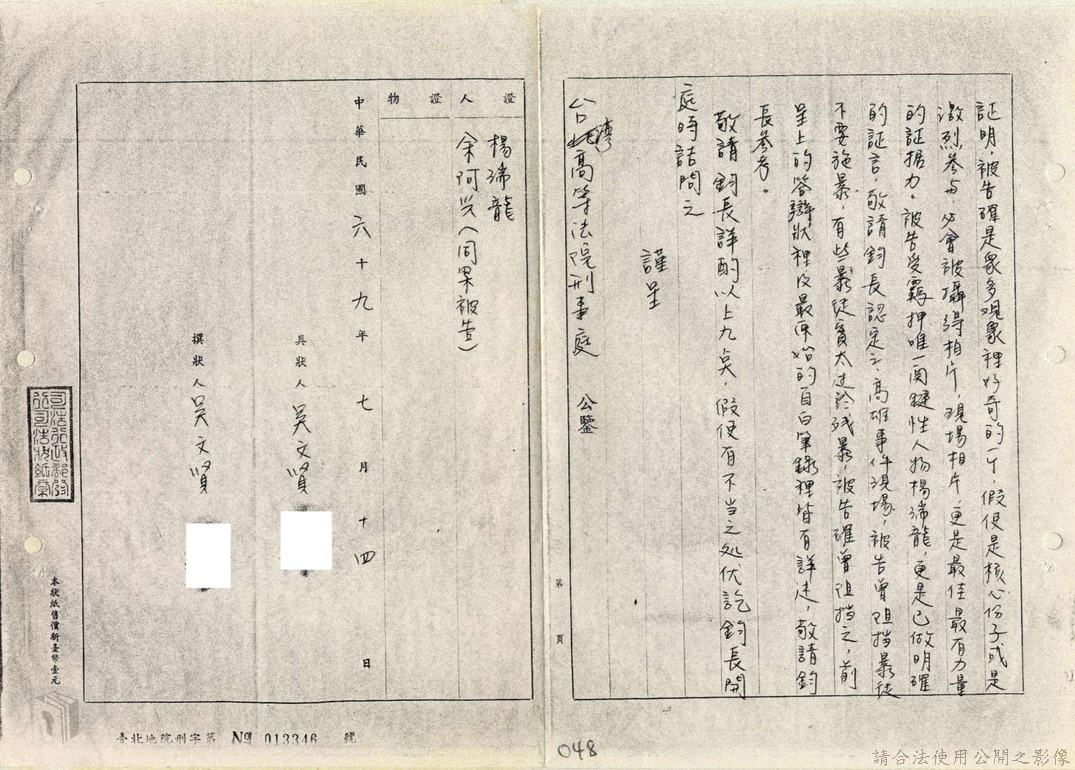 証明，被告確是眾多观眾裡好奇的一个，假使是核心份子或是
激烈参与，必會被攝得相片，現場相片，更是最佳最有力量
的証据力。被告受羈押唯一関鍵性人物楊瑞龍，更是已做明確
的証言，敬請鈞長認定之，高雄事件現場，被告曾阻挡暴徒
不要施暴，有些暴徒實太过於残暴，被告確曾阻挡之，前
呈上的答辯狀裡及最原始的自白筆錄裡皆有詳述，敬請鈞
長参考。
敬請鈞長詳酌以上九点，假使有不当之処伏訖鈞長開
庭時詰問之
謹呈
台灣高等法院刑事庭 公鑒
第 頁
證人
證物
楊瑞龍
余阿兴(同案被告)
中華民國六十九年七月十四日
具狀人 吴文賢
撰狀人 吴文賢
司法行政部發
行司法狀紙章
本狀紙售價新臺幣壹元
臺北地院刑字第 № 013346 號
048
請合法使用公開之影像